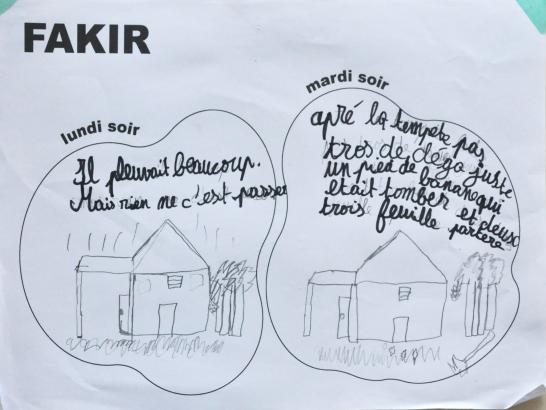 FAKIR
lundi soir
Il pleuvait beaucoup.
Mais rien ne c'est passer
mardi soir
apré la tempete pas
tros de déga juste
un pied de banane qui
etait tomber et deux
trois feuille par tere